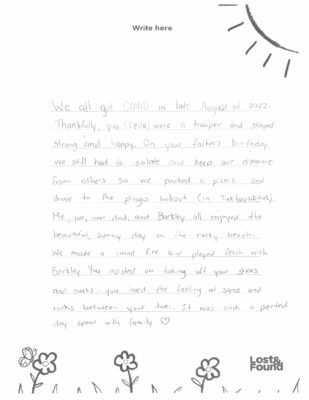 Write here
We all got COVID in late August of 2022.
Thankfully, you (Leila) were a trooper and stayed
strong and happy. On your fathers birthday,
we still had to isolate and keep our distance
from others so we packed a picnic and
drove to the pingo lookout (in Tuktoyaktuk).
Me, you, your dad, and Barkley all enjoyed the
beautiful, sunny day on the rocky beach.
We made a small fire and played fetch with
Barkley. You insisted on taking off your shoes
and socks. you loved the feeling of sand and
rocks between your toes. It was such a perfect
day spent with family. ♡
Lost&
Found